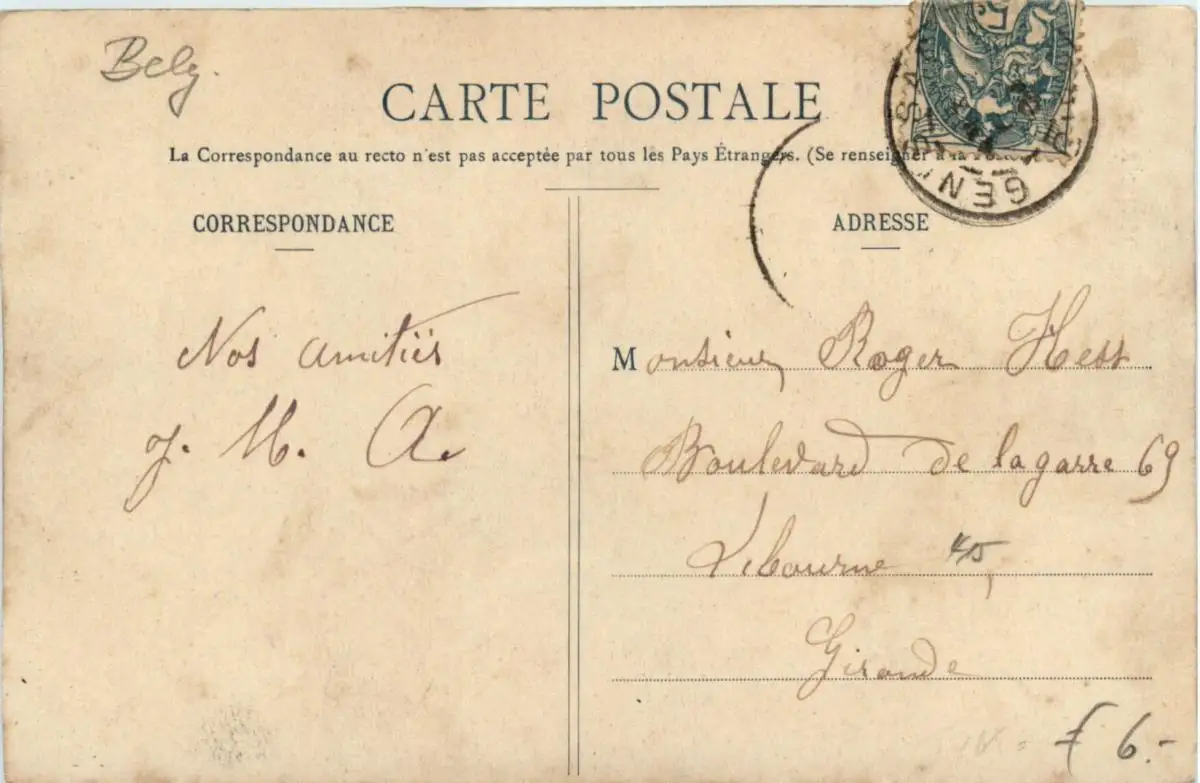 Belg.
CARTE POSTALE
La Correspondance au recto n'est pas acceptée par tous les Pays Étrangers. (Se renseigner à la Poste)
CORRESPONDANCE
Nos amitiés
J. M. A.
ADRESSE
Monsieur Roger Hess
Boulevard de lagarre 69
Libourne 4/5
Gironde
€ 6.-